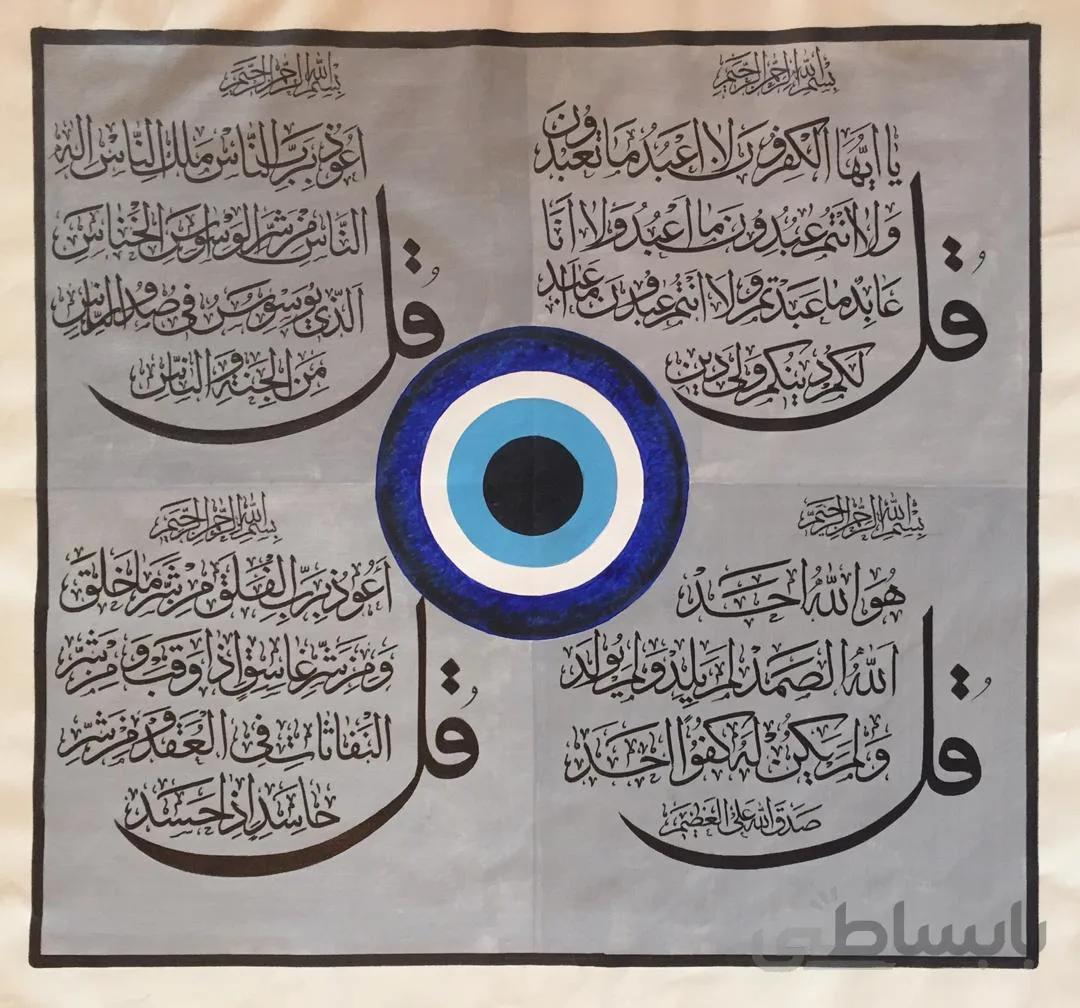 بسم الله الرحمن الرحيم
قل
يا ايها الكفرون لا اعبد ما تعبدون
ولا انتم عبدون ما اعبد ولا انا
عابد ما عبدتم ولا انتم عبدون ما عابد
لكم دينكم ولي دين
بسم الله الرحمن الرحيم
قل
اعوذ برب الناس ملك الناس اله
الناس من شر الوسواس الخناس
الذي يوسوس في صدور الناس
من الجنة و الناس
بسم الله الرحمن الرحيم
قل
هو الله احد
الله الصمد لم يلد ولم يولد
ولم يكن له كفوا احد
صدق الله علي العظيم
بسم الله الرحمن الرحيم
قل
اعوذ برب الفلق من شر ما خلق
و من شر غاسق اذا وقب و من شر
النفاثات في العقد و من شر
حاسد اذا حسد
باساطی